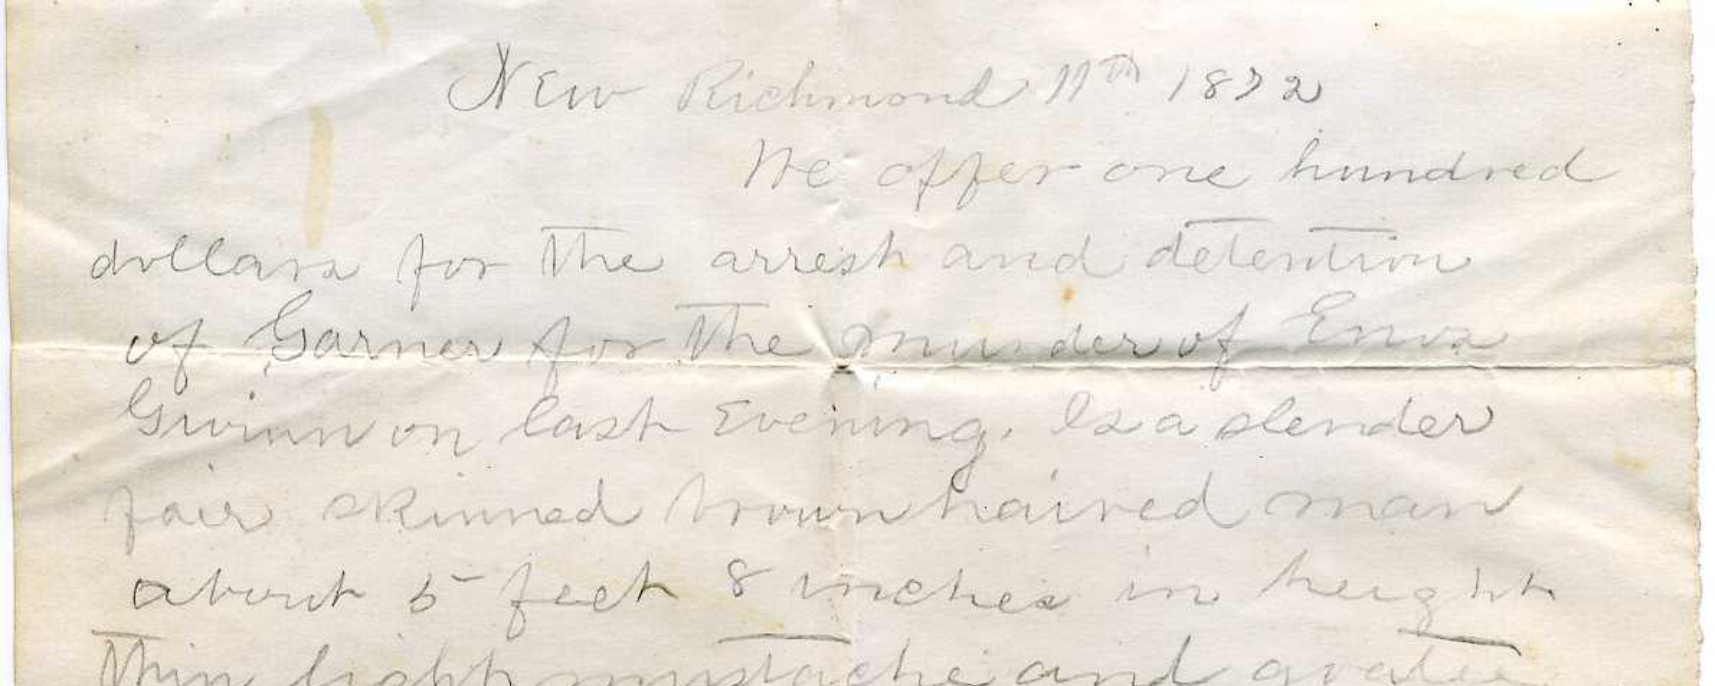 New Richmond 11th 1872
We offer one hundred
dollars for the arrest and detention
of Garner for the murder of Enos
Gwinn on last Evening. Is a slender
fair skinned brown haired man
about 5 feet 8 inches in height
thin light mustache and goatee